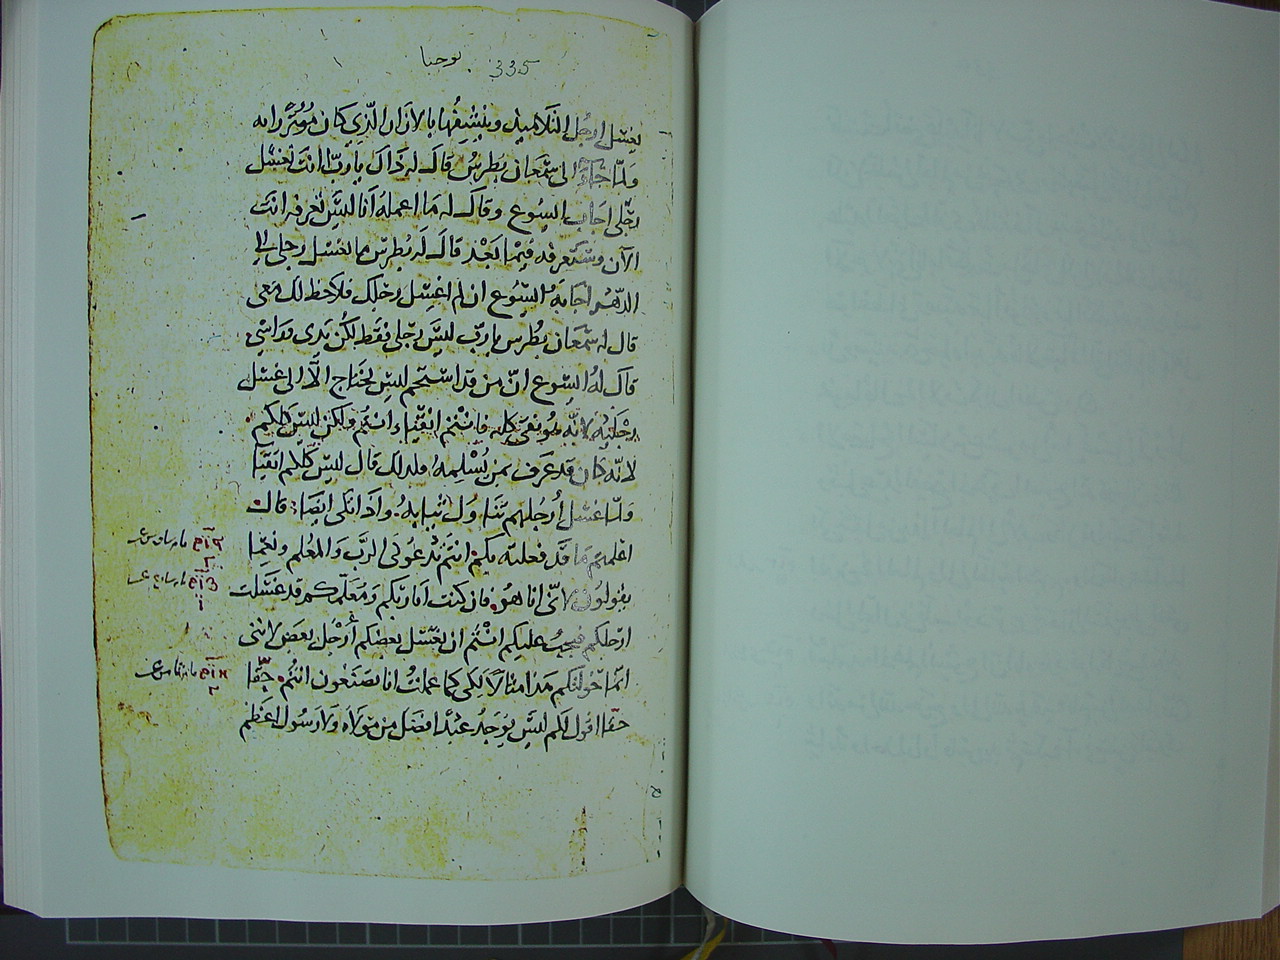 يوحنا 335
يغسل ارجل التلاميذ وينشفها بالازار الذي كان موتزرا به
ولما جاء الى سمعان بطرس قال له ذاك يا رب انت تغسل
رجلي اجاب اليسوع وقال له ما اعمله انا ليس تعرفه انت
الآن وستعرفه فيما بعد قال له بطرس ما تغسل رجلي الى
الدهر اجابه اليسوع ان لم اغسل رجلك فلا حظ لك معي
قال له سمعان بطرس يا رب ليس رجلي فقط لكن يدي وراسي
قال له اليسوع ان من قد استحم ليس يحتاج الّا الى غسل
رجليه لانه هو نقي كله فانتم انقياء وانتم ولكن ليس كلكم
لانه كان قد عرف بمن يسلمه ولذلك قال ليس كلكم انقيا
ولما غسل أرجلهم تناول ثيابه واذ اتكى ايضا قال
اعلمتم ما قد فعلته بكم انتم تدعوني الرب والمعلم ونعما
يقولون لاني انا هو فان كنت انا ربكم ومعلمكم قد غسلت
ارجلكم فيجب عليكم انتم ان يغسل بعضكم أرجل بعض لانني
انما خولتكم هذا مثالا لكي كما عملت انا تصنعون انتم حقا
حقا اقول لكم ليس يوجد عبدا افضل من مولاه ولا رسول اعظم